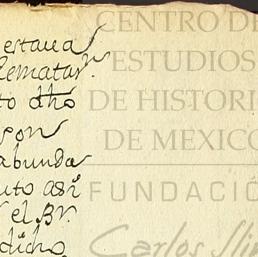 estaua
Rematar
to dho
por
abunda
uto asi
el Br.
dicho
CENTRO DE
ESTUDIOS
DE HISTORI
DE MEXICO
FUNDACIÓ
Carlos Slim